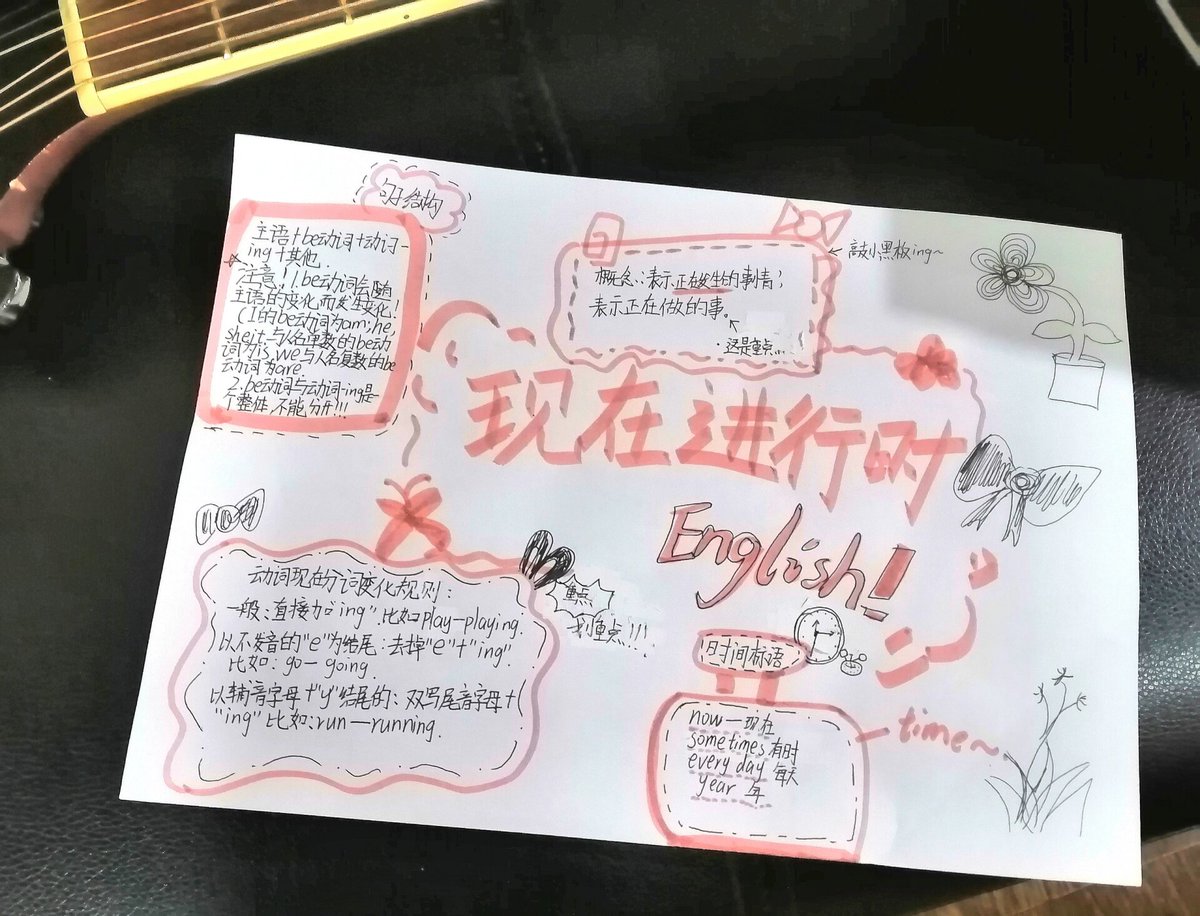 句子结构
主语+be动词+动词-
ing+其他.
☆注意！1.be动词会随
主语的变化,而发生变化!
(I的be动词为am;he,
she,it与人名单数的be动
词为is,we与人名复数的be
动词为are.
2.be动词与动词-ing是一
个整体,不能分开!!!
概念:表示正在发生的事情;
表示正在做的事。
·这是重点...
←敲小黑板ing~
现在进行时
English!
动词现在分词变化规则:
一般:直接加"ing".比如play—playing.
以不发音的"e"为结尾:去掉"e"+"ing"
比如: go—going.
以辅音字母+"y"结尾的: 双写尾音字母+(
"ing"比如:run—running.
重点
划重点!!!
时间标语
now—现在
sometimes 有时
every day 每天
year 年
time~